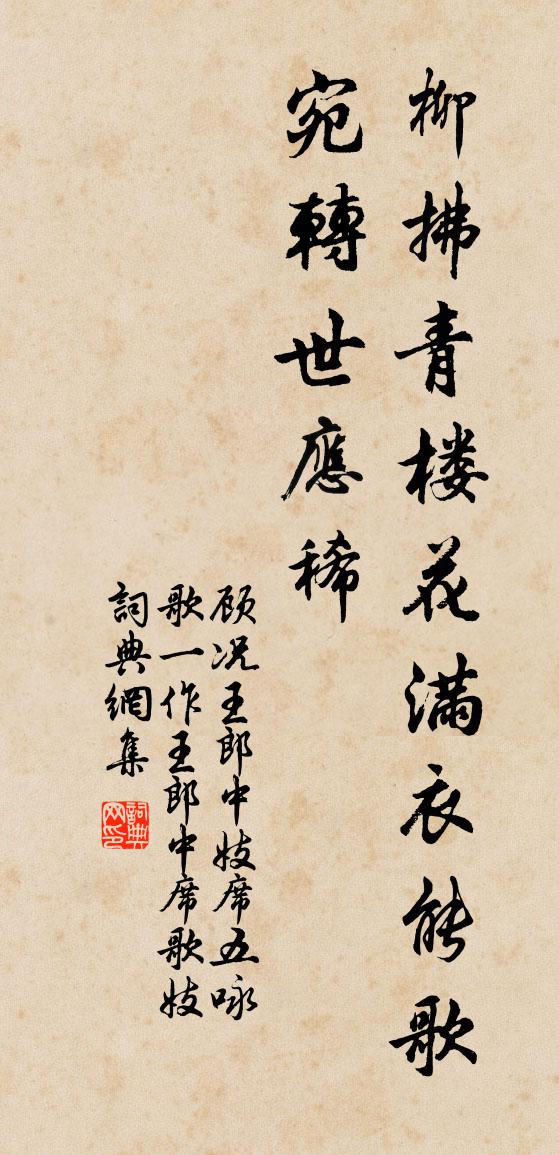 柳拂青楼花满衣能歌
宛轉世應稀
顾况王郎中妓席五咏
歌一作王郎中席歌妓
詞典網集
詞典
网印